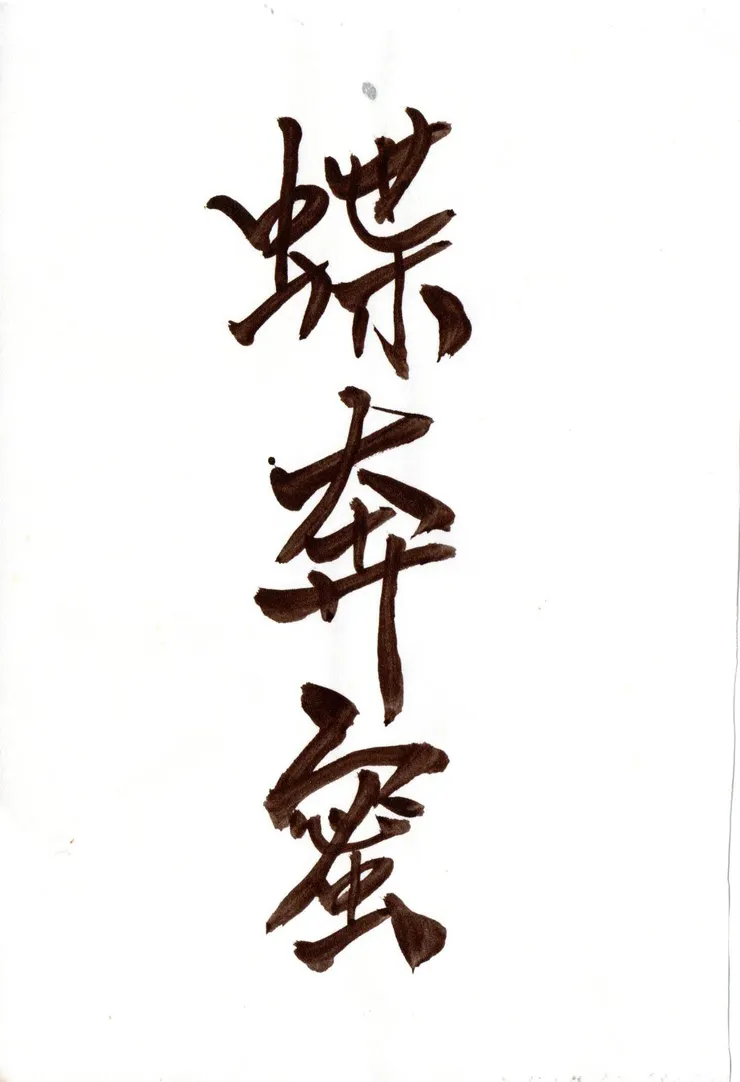 蝶奔蜜